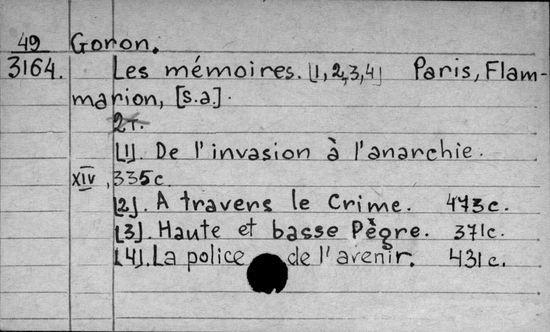 49 Goron.
3164. Les mémoires. [1,2,3,4] Paris, Flam-
marion, [s.a].
2т.
[1]. De l'invasion à l'anarchie.
XIV, 335c.
[2]. A travers le Crime. 473c.
[3]. Haute et basse Pègre. 371c.
[4]. La police de l'avenir. 431c.